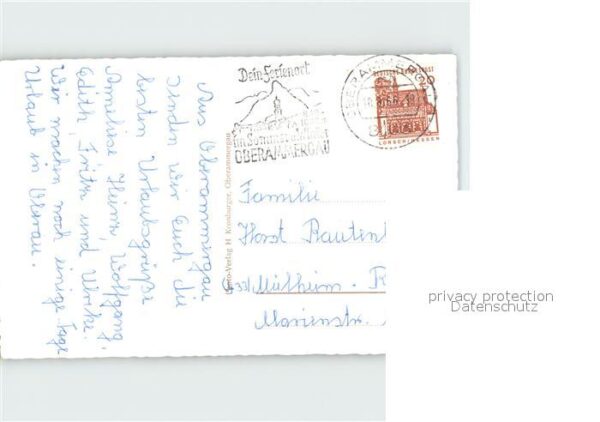 Aus Oberammergau
senden wir Euch die
besten Urlaubsgrüße
Anneliese, Heinz, Wolfgang,
Edith, Fritz und Ulrike.
Wir machen noch einige Tage
Urlaub in Oberau.
Dein Ferienort
im Sommer und Winter
OBERAMMERGAU
OBERAMMERGAU
DEUTSCHE BUNDESPOST
20
LORSCH/HESSEN
Foto-Verlag H Kronburger, Oberammergau
Familie
Horst Rautenb
Mülheim. R
Marienstr.
privacy protection
Datenschutz